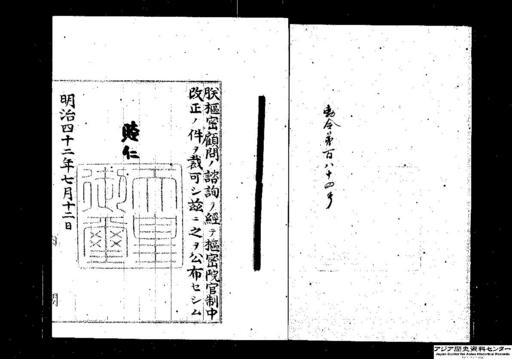 勅令第百八十四号
朕枢密顧問ノ諮詢ノ経テ枢密院官制中
改正ノ件ヲ裁可シ茲ニ之ヲ公布セシム
睦仁
天皇御璽
明治四十二年七月十二日
アジア歴史資料センター
Japan Center for Asian Historical Records